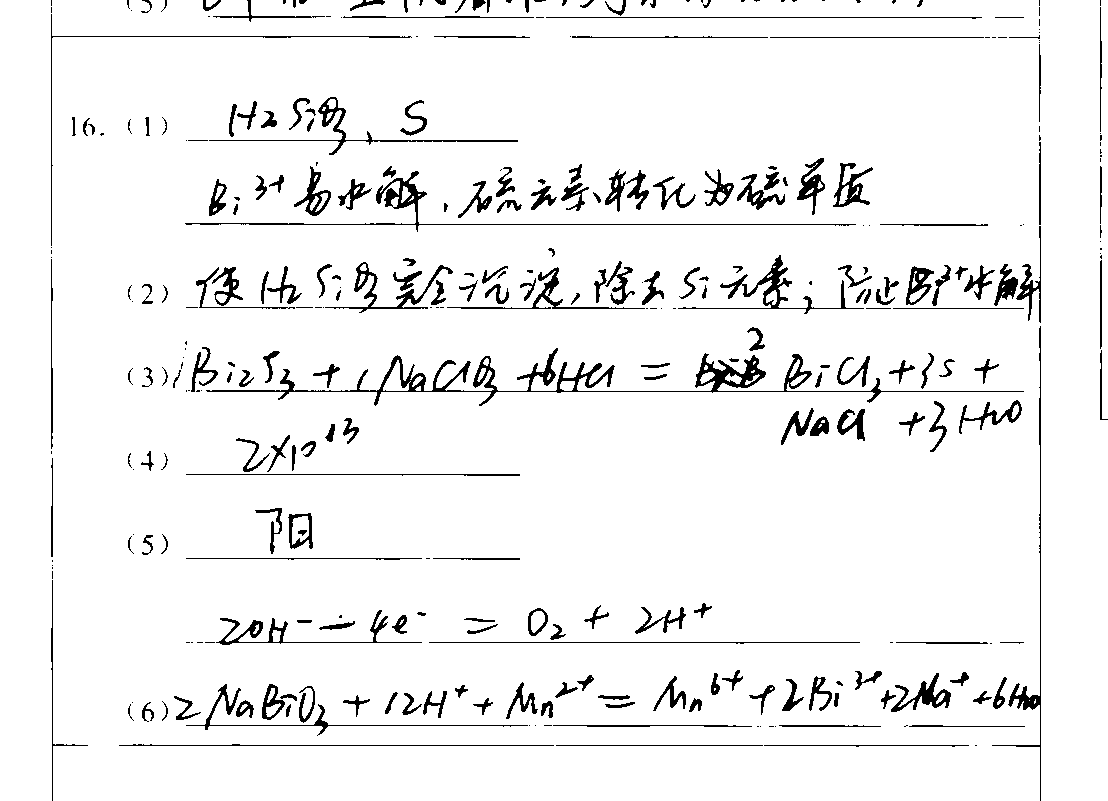 (5)
16.(1) H₂SiO₃、S
Bi³⁺易水解,硫元素转化为硫单质
(2) 使H₂SiO₃完全沉淀,除去Si元素;防止Bi³⁺水解
(3) 1Bi₂S₃ + 1NaClO₃ + 6HCl = 2BiCl₃ + 3S +
NaCl + 3H₂O
(4) 2×10¹³
(5) 阳
2OH⁻ − 4e⁻ = O₂ + 2H⁺
(6) 2NaBiO₃ + 12H⁺ + Mn²⁺ = Mn⁶⁺ + 2Bi³⁺ + 2Na⁺ + 6H₂O